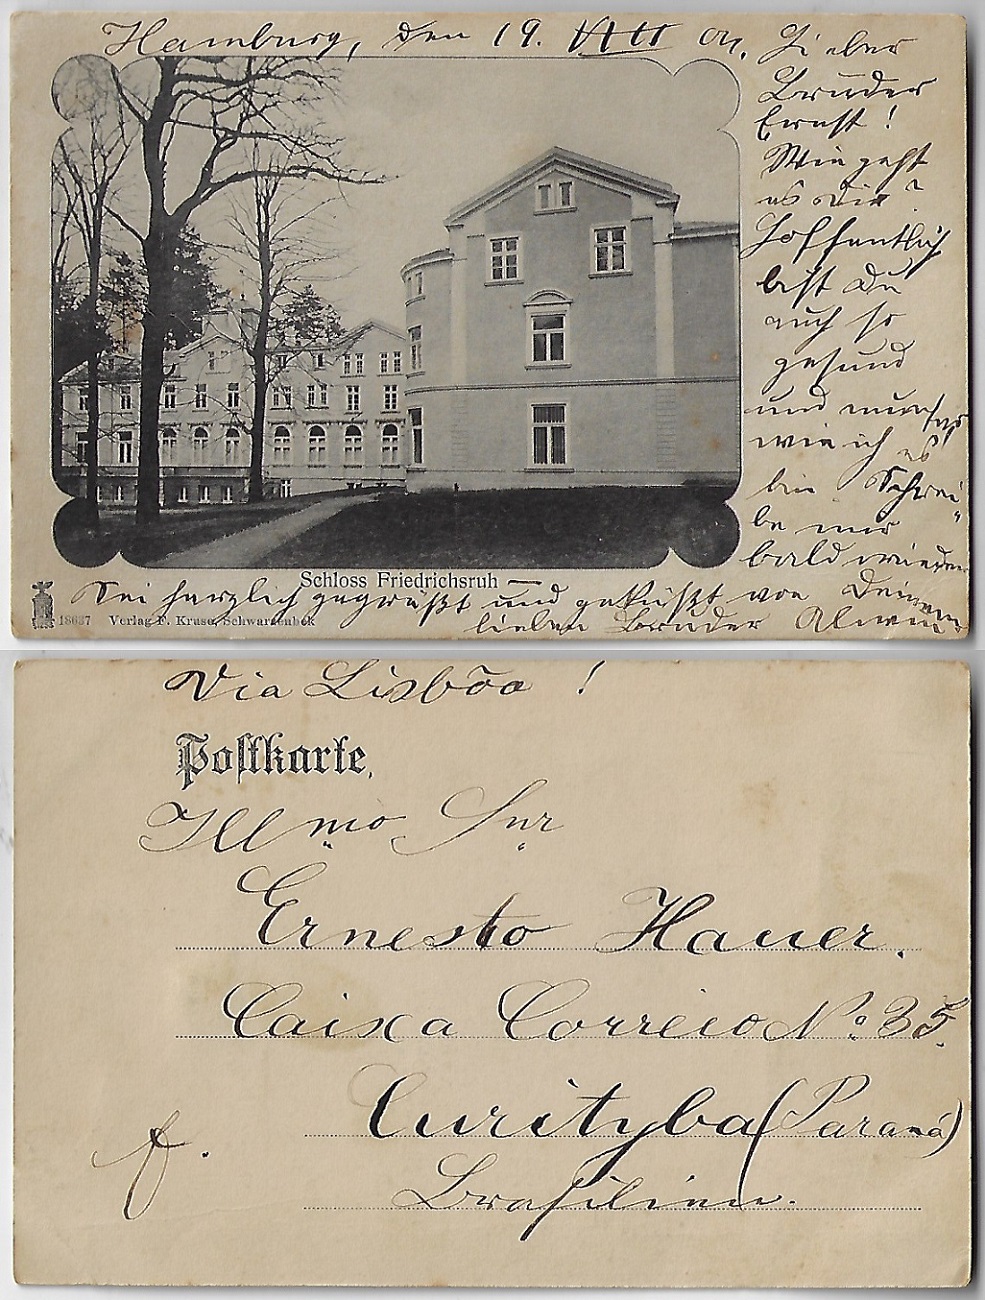 Hamburg, den 19. VIII 04.
Lieber
Bruder
Ernst!
Wie geht
es Dir?
Hoffentlich
bist Du
auch so
gesund
und munter
wie ich es
bin. Schrei-
be mir
bald wieder.
Schloss Friedrichsruh
Sei herzlich gegrüßt und geküßt von Deinem
18637 Verlag F. Kruse, Schwarzenbek
lieben Bruder Alwin.
Via Lisbôa!
Postkarte.
Illmo. Snr
Ernesto Hauer.
Caixa Correio No. 35.
Curityba (Paraná)
f.
Brasilien.